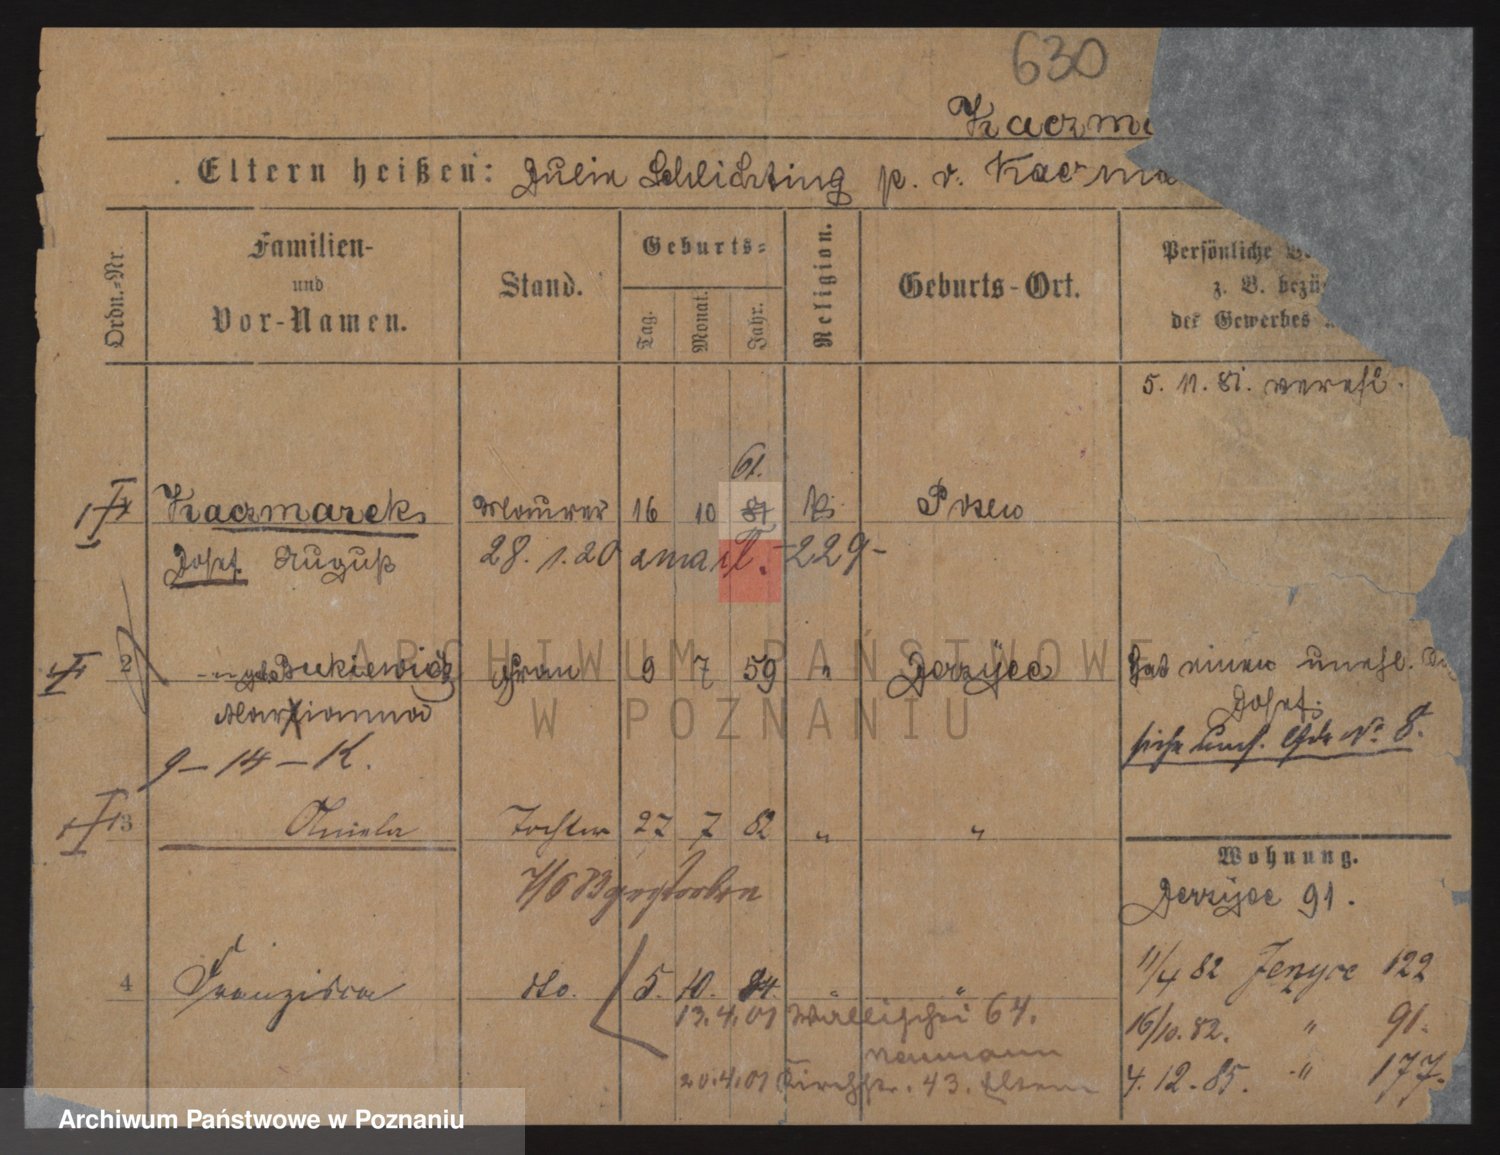 630
Kaczma
Eltern heißen: Julie Schlichting p. v. Kaczma
Ordn.-Nr.
Familien-
und
Vor-Namen.
Stand.
Geburts-
Tag.
Monat.
Jahr.
Religion.
Geburts-Ort.
Persönliche
z. B. bezü
der Gewerbes
5. 11. 81. verehl.
61.
1 Kaczmarek Maurer 16 10 81 k. Posen
Josef August 28. 1. 20 -229-
2 - " geb. Bukiewicz Frau 9 7 59 " Jerzyce Hat einen unehl.
Marianna Josef
siehe No 8.
9-14-K.
3 Aniela Tochter 27 7 82 " "
Wohnung.
7/6 83 gestorben
Jerzyce 91.
11/4 82 Jerzyce 122
4 Franziska dto. 5. 10. 84. "
13.4.01 Wallischei 64. 16/10. 82. " 91.
Neumann
20.4.01 Kirchstr. 43. Eltern 4. 12. 85. " 177.
ARCHIWUM PAŃSTWOWE
W POZNANIU
Archiwum Państwowe w Poznaniu